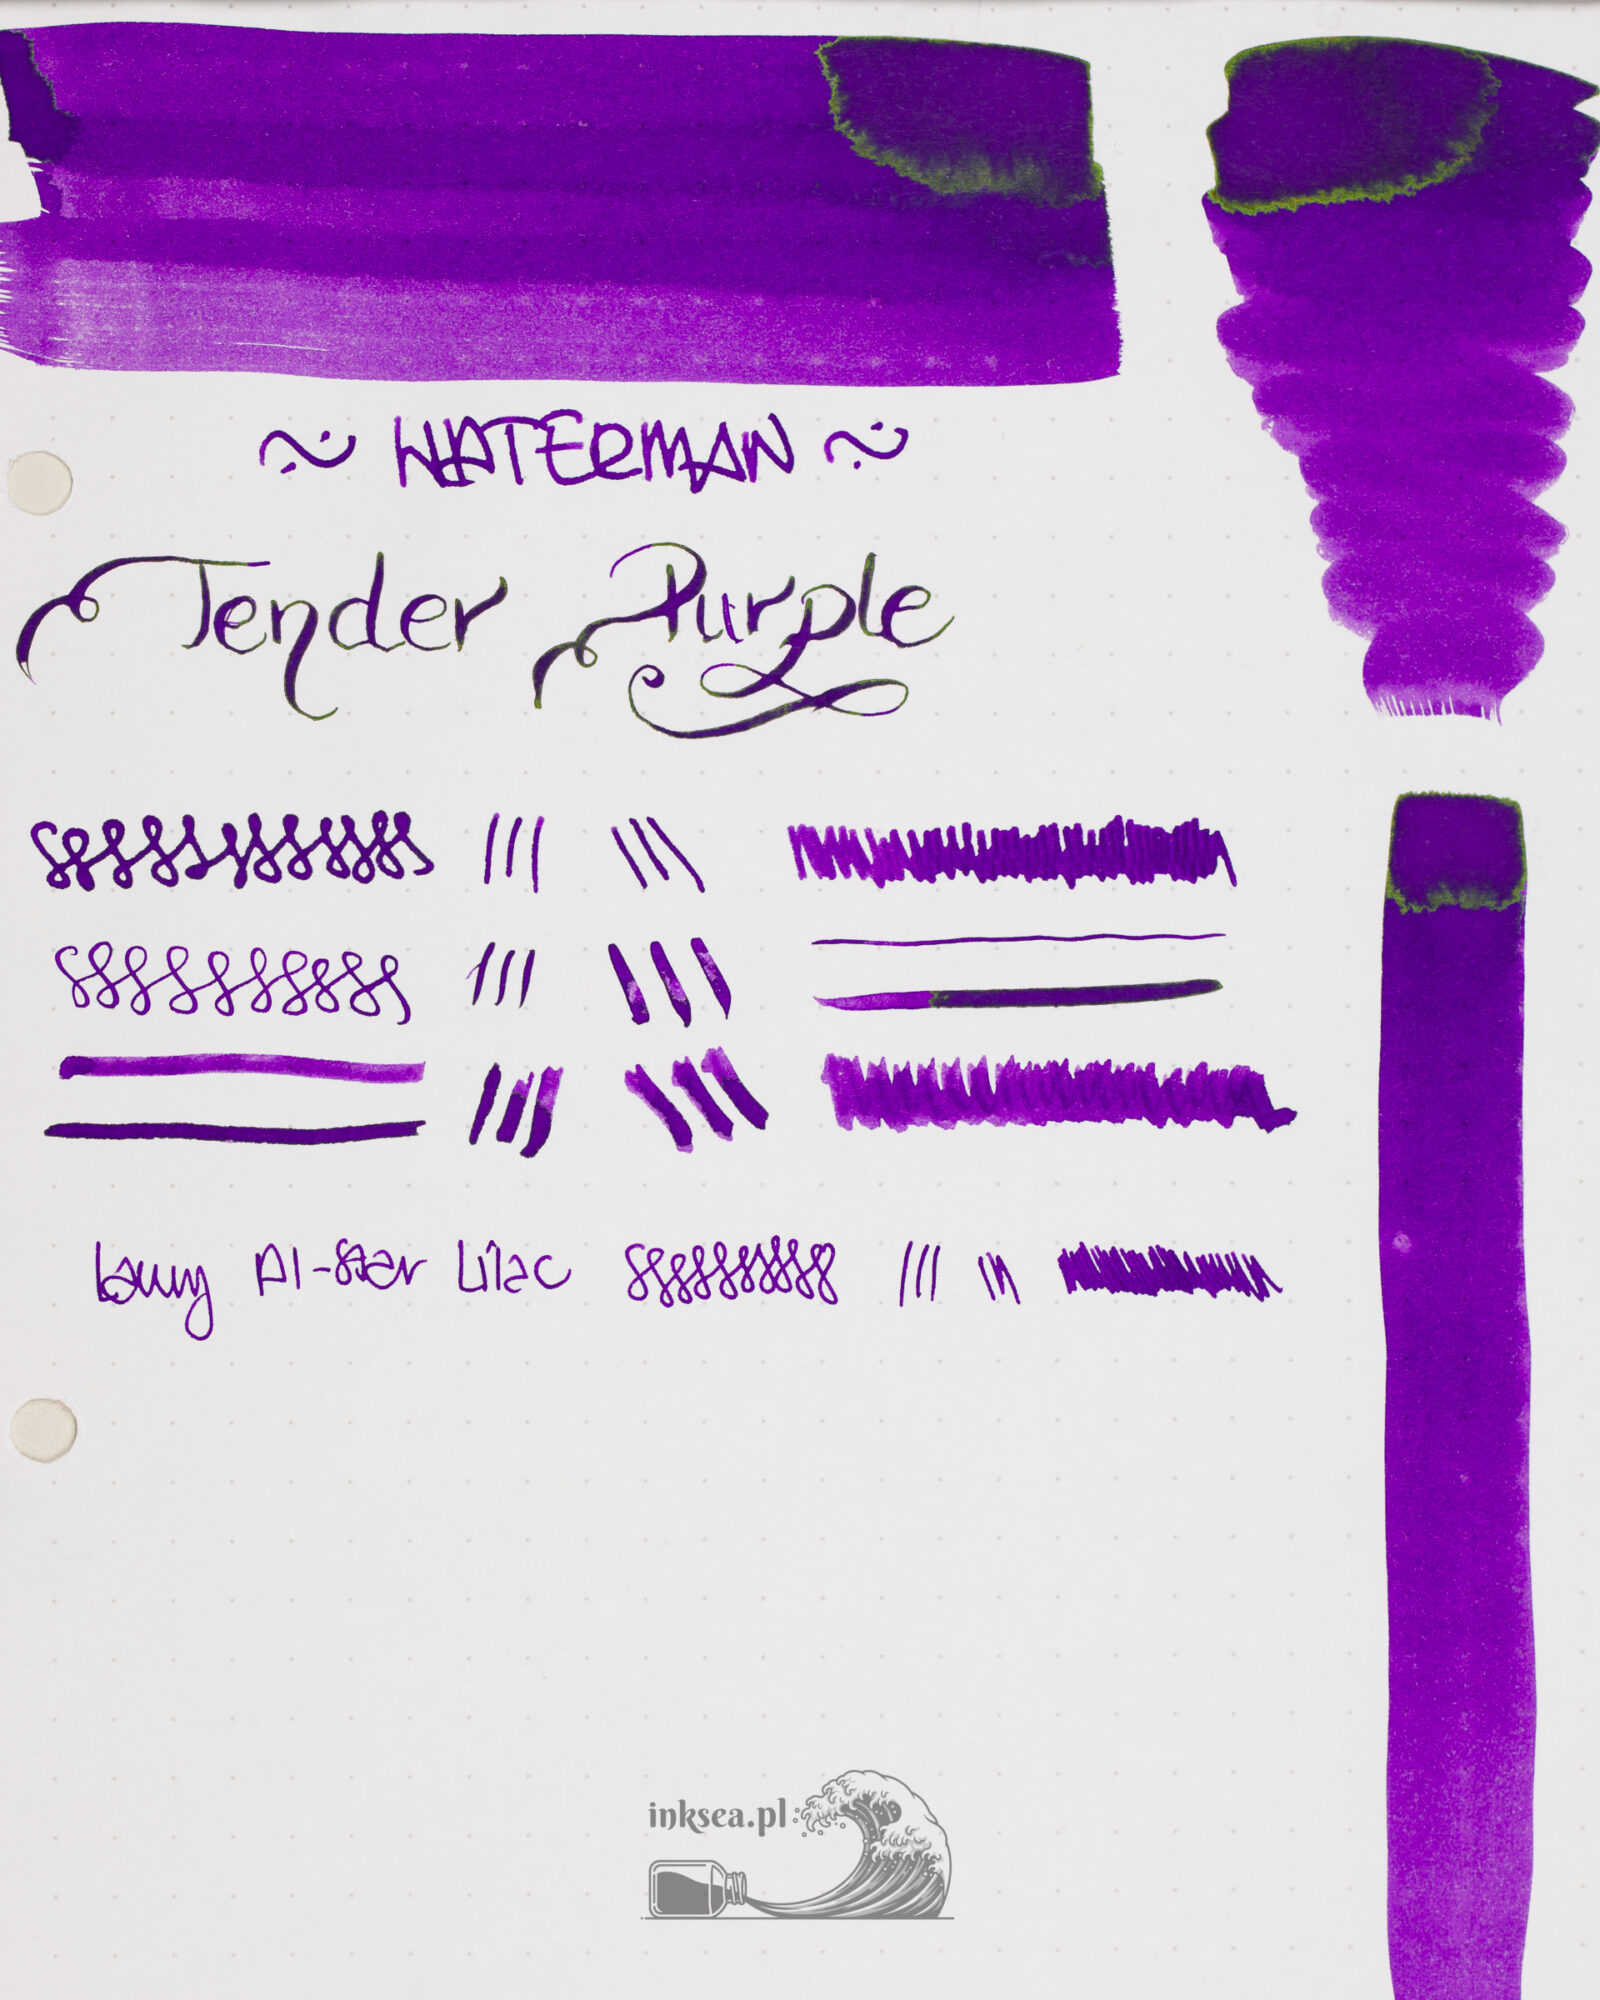 ~ WATERMAN ~
Tender Purple
Lamy Al-Star Lilac
inksea.pl